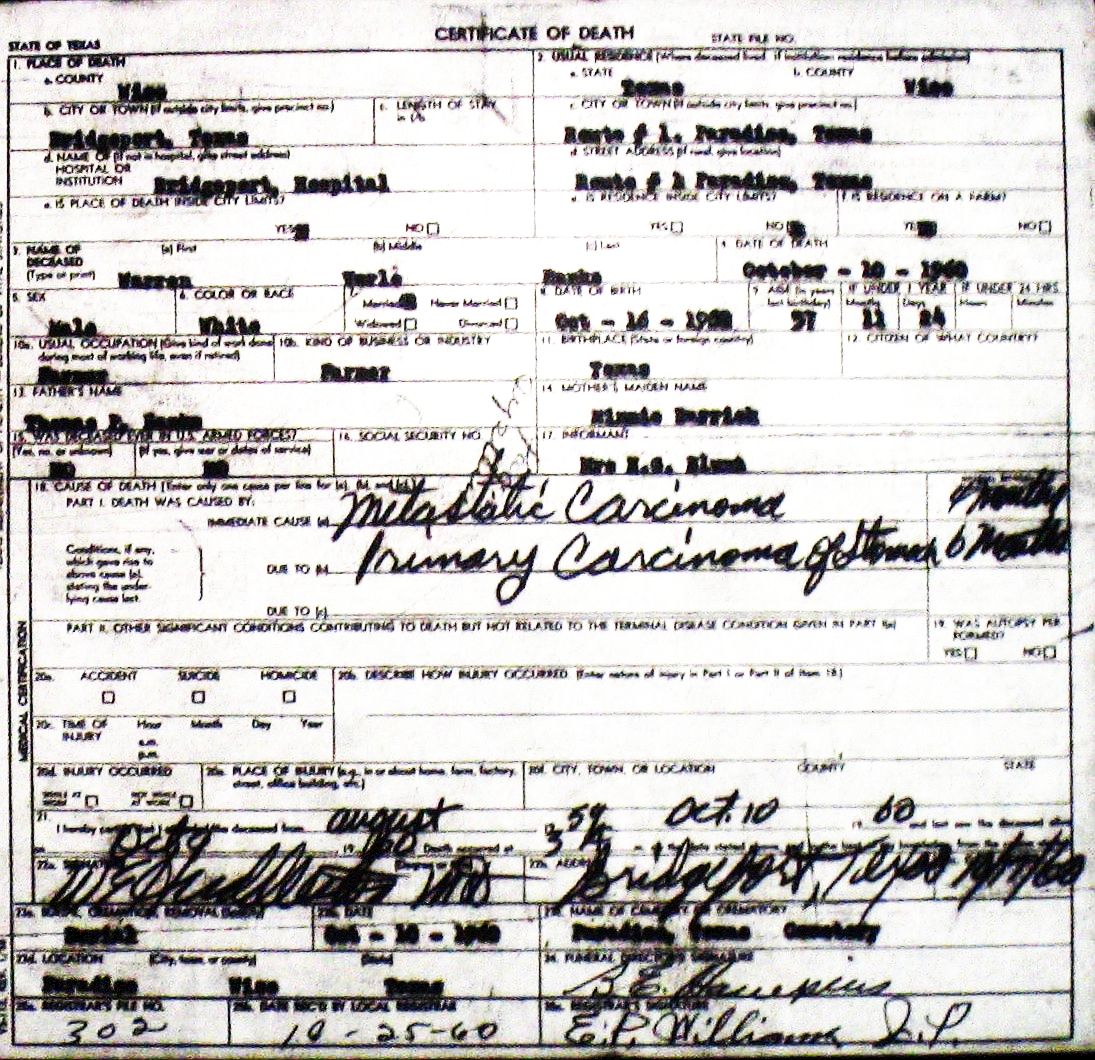 CERTIFICATE OF DEATH
STATE OF TEXAS STATE FILE NO.
1. PLACE OF DEATH
a. COUNTY
Wise
2. USUAL RESIDENCE (Where deceased lived. If institution: residence before admission)
a. STATE b. COUNTY
Texas Wise
b. CITY OR TOWN (If outside city limits, give precinct no.)
Bridgeport, Texas
c. LENGTH OF STAY
in 1b
c. CITY OR TOWN (If outside city limits, give precinct no.)
Route # 1. Paradise, Texas
d. NAME OF (If not in hospital, give street address)
HOSPITAL OR
INSTITUTION Bridgeport, Hospital
d. STREET ADDRESS (If rural, give location)
Route # Paradise, Texas
e. IS PLACE OF DEATH INSIDE CITY LIMITS?
YES NO
e. IS RESIDENCE INSIDE CITY LIMITS?
YES NO
f. IS RESIDENCE ON A FARM?
YES NO
3. NAME OF
DECEASED
(Type or print)
(a) First (b) Middle (c) Last
Warren
4. DATE OF DEATH
October - 10 - 1960
5. SEX
Male
6. COLOR OR RACE
White
Married Never Married
Widowed Divorced
8. DATE OF BIRTH
Oct - 16 -
9. AGE (In years
last birthday)
57
IF UNDER 1 YEAR
Months Days
11 24
IF UNDER 24 HRS.
Hours Minutes
10a. USUAL OCCUPATION (Give kind of work done
during most of working life, even if retired)
Farmer
10b. KIND OF BUSINESS OR INDUSTRY
Farmer
11. BIRTHPLACE (State or foreign country)
Texas
12. CITIZEN OF WHAT COUNTRY?
13. FATHER'S NAME
Thomas
14. MOTHER'S MAIDEN NAME
Minnie
15. WAS DECEASED EVER IN U.S. ARMED FORCES?
(Yes, no, or unknown) (If yes, give war or dates of service)
NO NO
16. SOCIAL SECURITY NO.
17. INFORMANT
Mrs
18. CAUSE OF DEATH (Enter only one cause per line for (a), (b), and (c).)
PART I. DEATH WAS CAUSED BY:
IMMEDIATE CAUSE (a) Metastatic Carcinoma
Conditions, if any,
which gave rise to
above cause (a),
stating the under-
lying cause last.
DUE TO (b) Primary Carcinoma of Stomach 6 Months
DUE TO (c)
PART II. OTHER SIGNIFICANT CONDITIONS CONTRIBUTING TO DEATH BUT NOT RELATED TO THE TERMINAL DISEASE CONDITION GIVEN IN PART I(a)
19. WAS AUTOPSY PER-
FORMED?
YES NO
MEDICAL CERTIFICATION
20a. ACCIDENT SUICIDE HOMICIDE
20b. DESCRIBE HOW INJURY OCCURRED. (Enter nature of injury in Part I or Part II of item 18.)
20c. TIME OF
INJURY
Hour Month Day Year
a.m.
p.m.
20d. INJURY OCCURRED
WHILE AT
WORK
NOT WHILE
AT WORK
20e. PLACE OF INJURY (e.g., in or about home, farm, factory,
street, office building, etc.)
20f. CITY, TOWN, OR LOCATION COUNTY STATE
21. I hereby certify that I attended the deceased from August 19 59 Oct. 10 19 60 and last saw the deceased alive
on Oct 9 19 60 Death occurred at
22a. SIGNATURE
MD
22b. ADDRESS
Bridgeport, Texas
23a. BURIAL, CREMATION, REMOVAL (Specify)
Burial
23b. DATE
Oct - 10 - 1960
23c. NAME OF CEMETERY OR CREMATORY
Paradise, Texas Cemetery
23d. LOCATION (City, town, or county) (State)
Paradise Wise Texas
24. FUNERAL DIRECTOR'S SIGNATURE
B.E.
25a. REGISTRAR'S FILE NO.
302
25b. DATE REC'D BY LOCAL REGISTRAR
10-25-60
25c. REGISTRAR'S SIGNATURE
E.P. Williams, J.P.